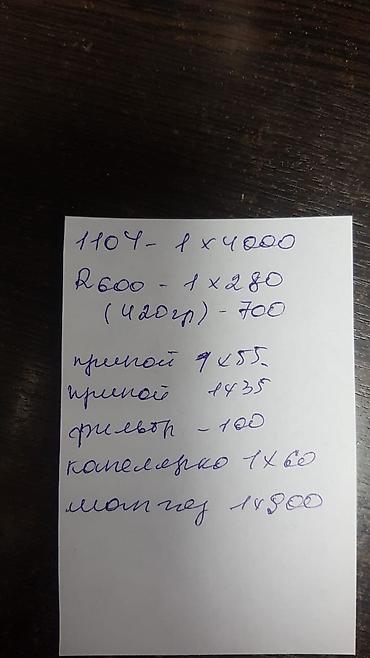 110Ч - 1 х 4000
R600 - 1 х 280
(420гр) - 700
припой 9х55
припой 1х35
фильтр - 100
капелярко 1х60
мапгаз 1х900